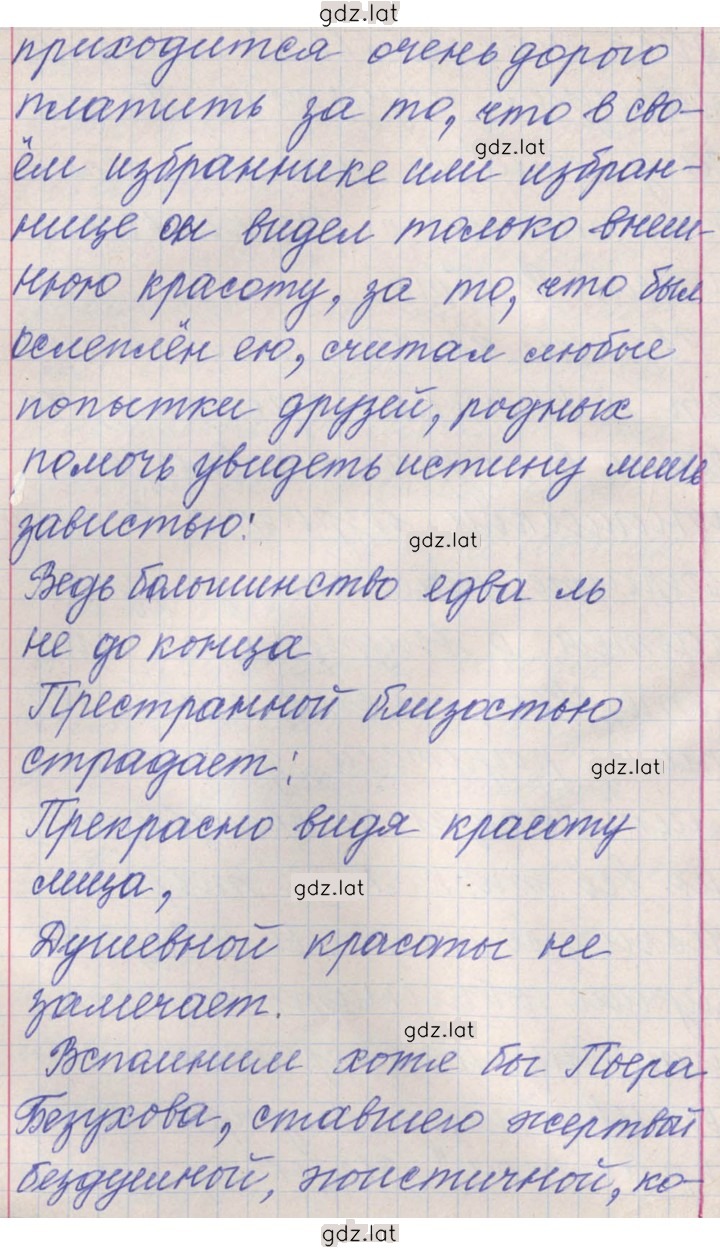 gdz.lat
приходится очень дорого
платить за то, что в сво-
gdz.lat
ём избраннике или избран-
нице он видел только внеш-
нюю красоту, за то, что был
ослеплён ею, считал любые
попытки друзей, родных
помочь увидеть истину лишь
завистью:
gdz.lat
Ведь большинство едва ль
не до конца
Престранной близостью
страдает:
gdz.lat
Прекрасно видя красоту
лица,
gdz.lat
Душевной красоты не
замечает.
gdz.lat
Вспомним хотя бы Пьера
Безухова, ставшего жертвой
бездушной, эгоистичной, ко-
gdz.lat